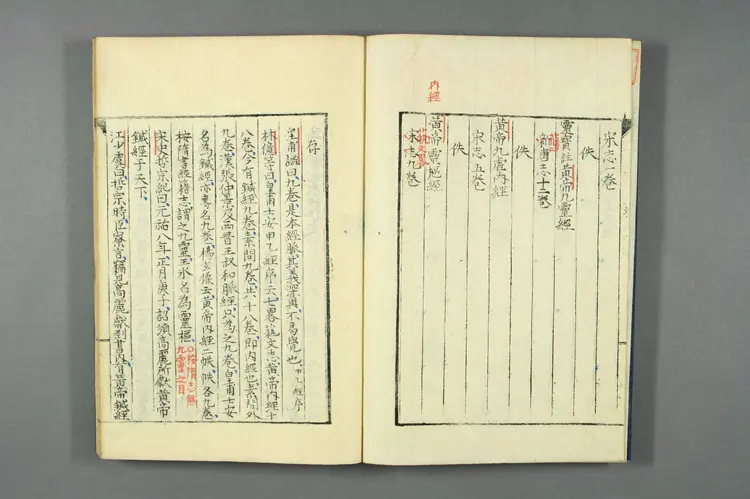 宋志一卷
佚
靈寶注黃帝九靈經
舊唐志十二卷
佚
黃帝九虛內經
宋志五卷
佚
內經
黃帝靈樞經
宋志九卷
存
皇甫謐曰九卷是本經脈其義深奧不易覺也甲乙經序
林億等曰皇甫士安甲乙經序云七畧藝文志黃帝內經十
八卷今有鍼經九卷素問九卷共十八卷即內經也素問外
九卷漢張仲景及西晉王叔和脈經只為之九卷皇甫士安
名為鍼經亦專名九卷楊玄操云黃帝內經二帙帙各九卷
按隋書經籍志謂之九靈王氷名為靈樞
按隋志無九靈之目
宋史哲宗紀曰元祐八年正月庚子詔頒高麗所獻黃帝
鍼經于天下
江少虞曰哲宗時臣寮言竊見高麗獻到書內有黃帝鍼經